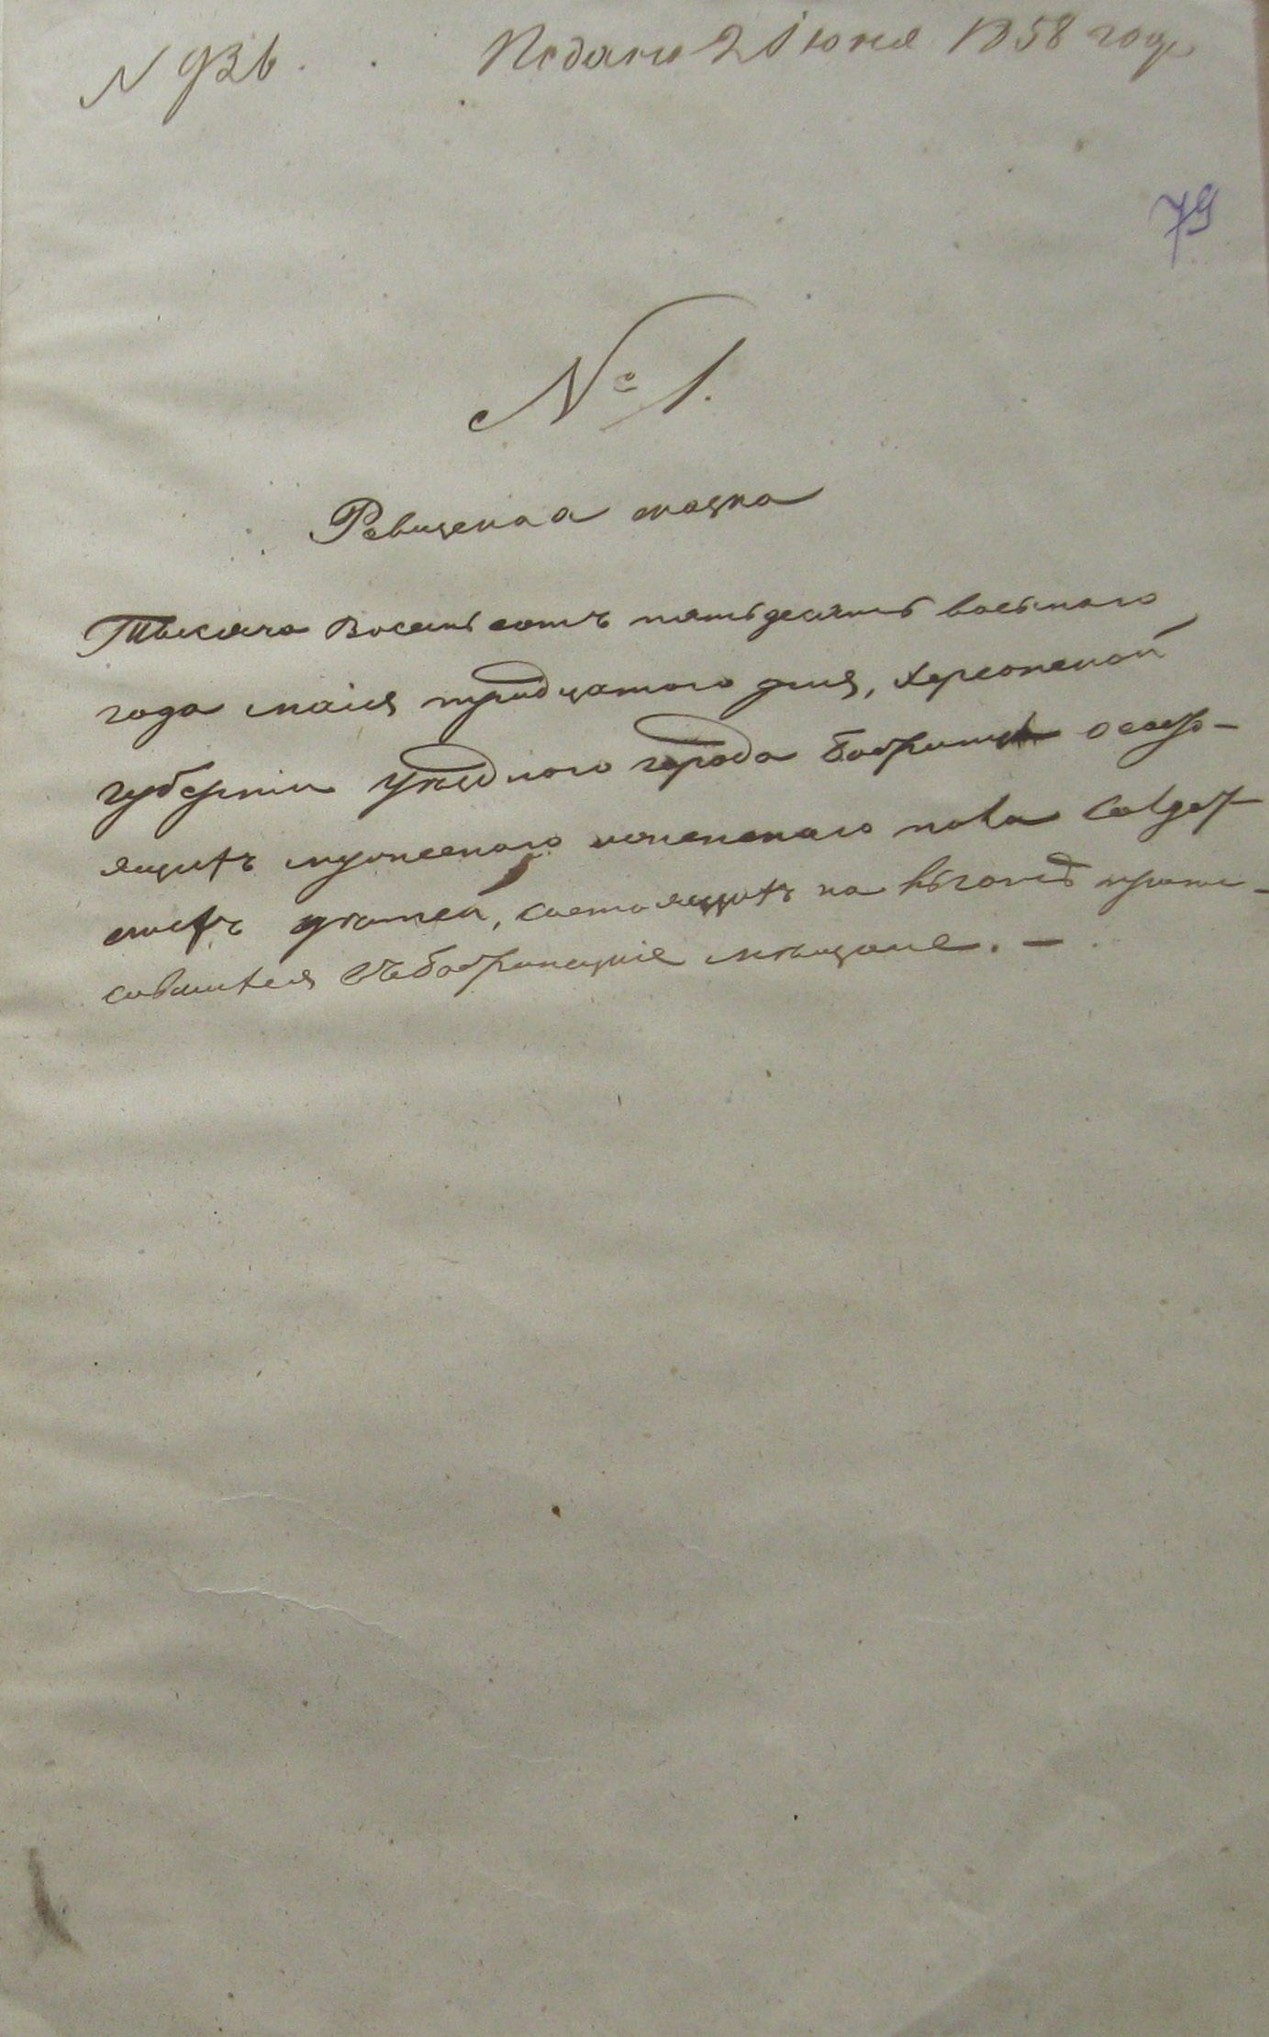 N 936. Подана 21 июня 1858 года
79
№ 1.
Ревизская сказка
Тысяча Восемь сотъ пятьдесятъ восьмаго
года маія тридцатаго дня, Херсонской
губерніи уѣзднаго города Бобринца о
мужескаго женскаго пола Солдат-
скихъ дѣтей, состоящихъ на
савшихся въ Бобринецкіе мѣщане. —